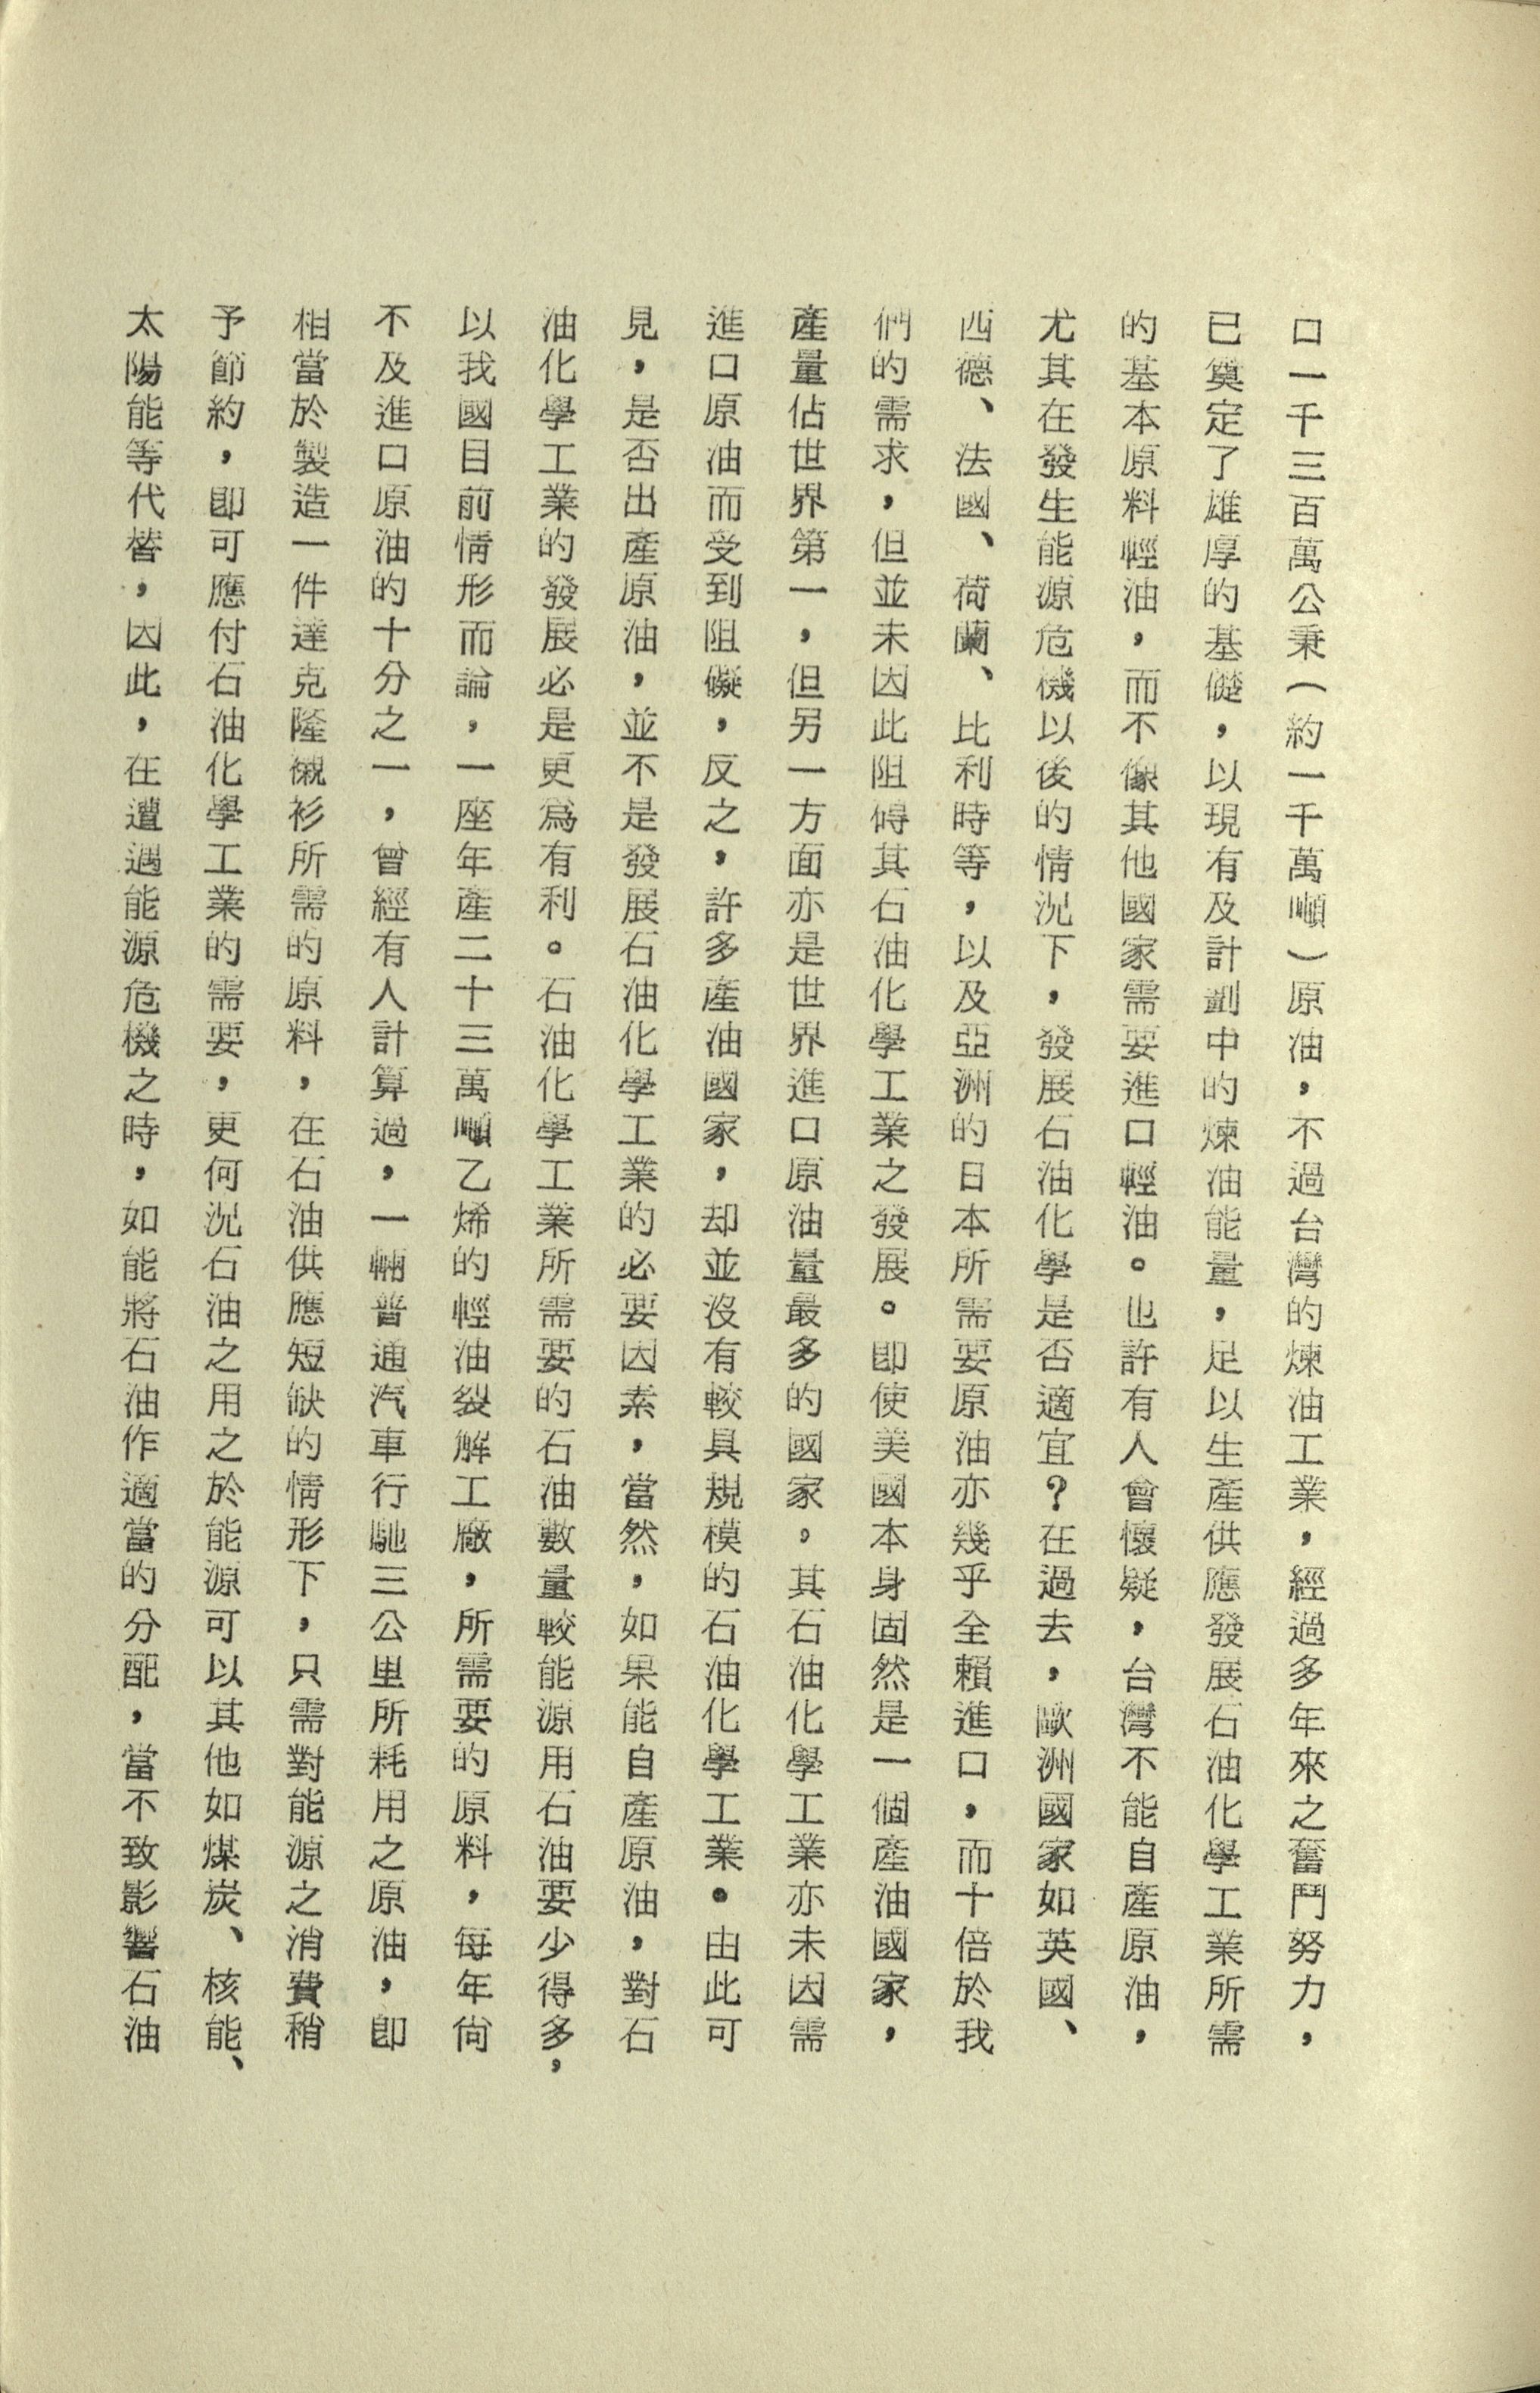 口一千三百萬公秉(約一千萬噸)原油,不過台灣的煉油工業,經過多年來之奮鬥努力,
已奠定了雄厚的基礎,以現有及計劃中的煉油能量,足以生產供應發展石油化學工業所需
的基本原料輕油,而不像其他國家需要進口輕油。也許有人會懷疑,台灣不能自產原油,
尤其在發生能源危機以後的情況下,發展石油化學是否適宜?在過去,歐洲國家如英國、
西德、法國、荷蘭、比利時等,以及亞洲的日本所需要原油亦幾乎全賴進口,而十倍於我
們的需求,但並未因此阻碍其石油化學工業之發展。即使美國本身固然是一個產油國家,
產量佔世界第一,但另一方面亦是世界進口原油量最多的國家。其石油化學工業亦未因需
進口原油而受到阻礙,反之,許多產油國家,却並沒有較具規模的石油化學工業。由此可
見,是否出產原油,並不是發展石油化學工業的必要因素,當然,如果能自產原油,對石
油化學工業的發展必是更爲有利。石油化學工業所需要的石油數量較能源用石油要少得多,
以我國目前情形而論,一座年產二十三萬噸乙烯的輕油裂解工廠,所需要的原料,每年尙
不及進口原油的十分之一,曾經有人計算過,一輛普通汽車行馳三公里所耗用之原油,即
相當於製造一件達克隆襯衫所需的原料,在石油供應短缺的情形下,只需對能源之消費稍
予節約,即可應付石油化學工業的需要,更何況石油之用之於能源可以其他如煤炭、核能、
太陽能等代替,因此,在遭遇能源危機之時,如能將石油作適當的分配,當不致影響石油